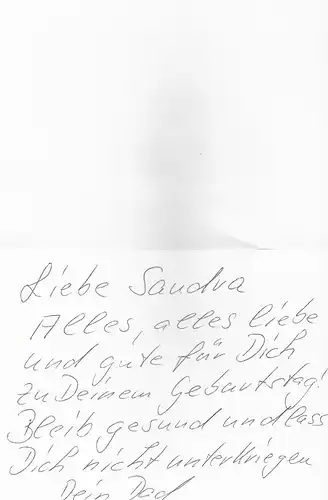 Liebe Sandra
Alles, alles liebe
und gute für Dich
zu Deinem Geburtstag!
Bleib gesund und lass
Dich nicht unterkriegen
Dein Dad